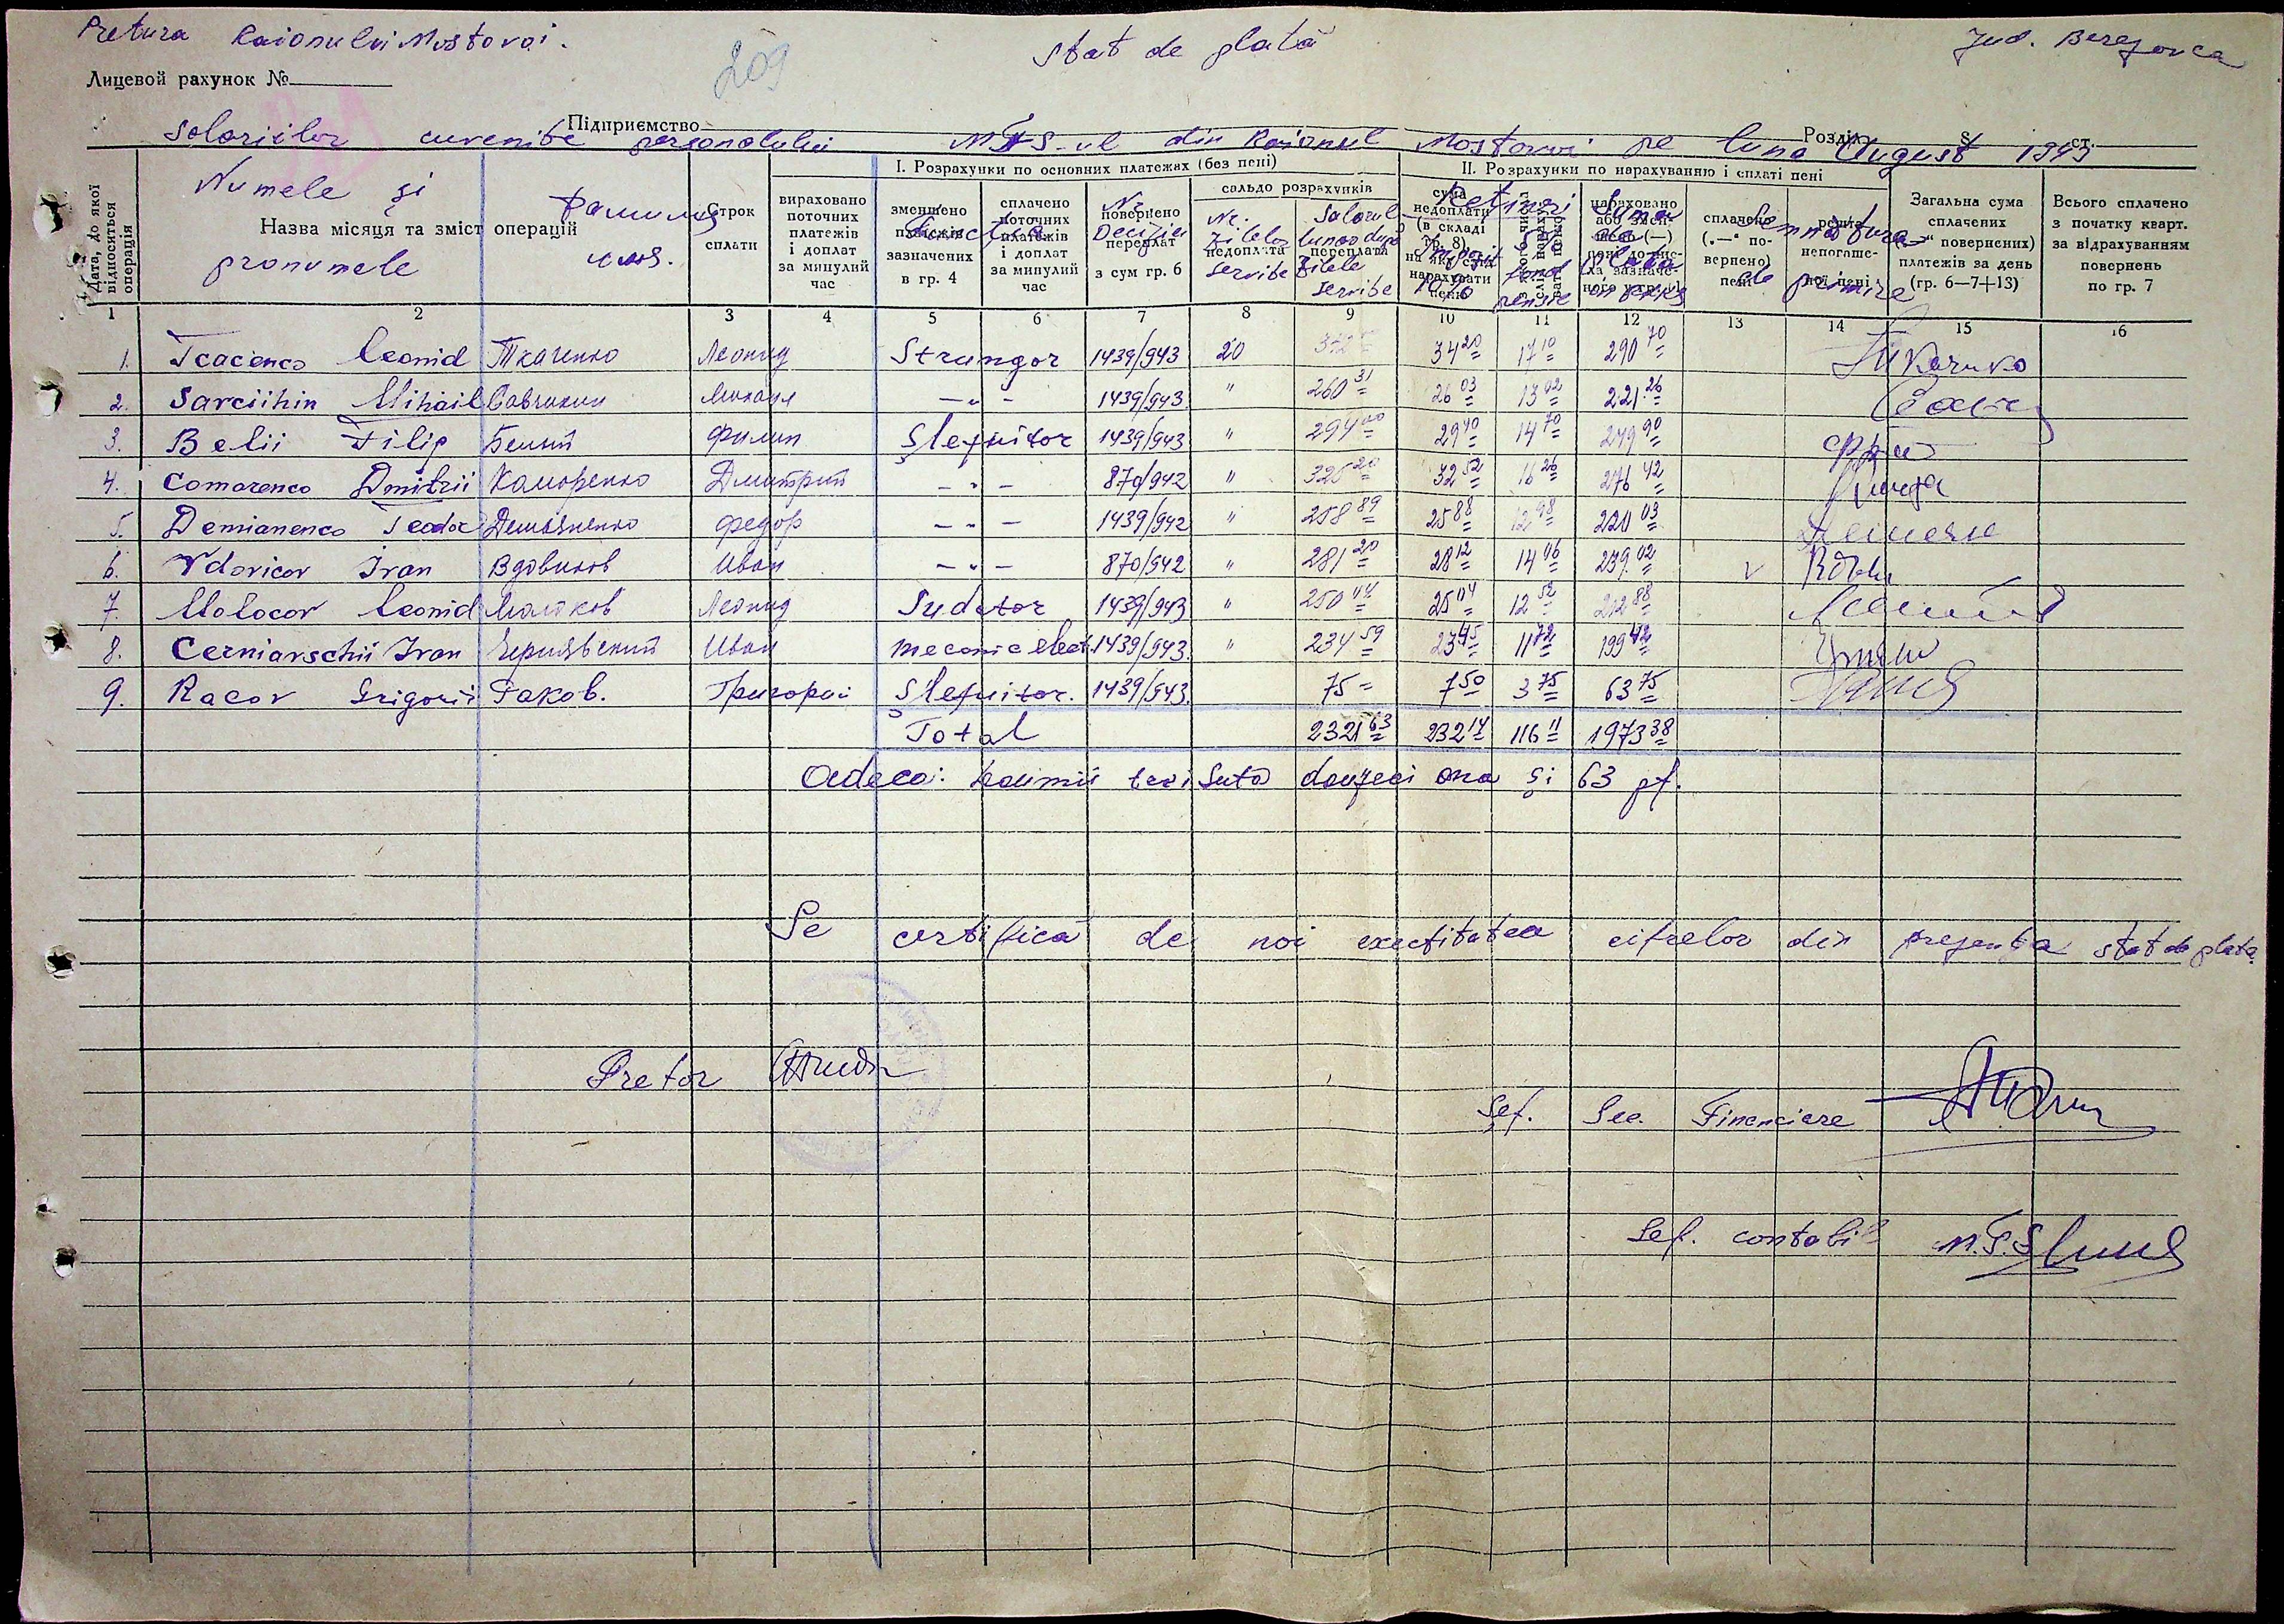 Pretura Raionului Mostovoi.
209
Stat de plată
Jud. Berezovca
Лицевой рахунок №
Підприємство
Розділ § ст.
Salariilor cuvenite personalului MTS-ul din Raionul Mostovoi pe luna August 1943
Дата, до якої відноситься операція
Numele și pronumele
Фамилия имя.
Назва місяця та зміст операцій
Строк сплати
І. Розрахунки по основних платежах (без пені)
вираховано поточних платежів і доплат за минулий час
зменшено платежів зазначених в гр. 4
сплачено поточних платежів і доплат за минулий час
Functia
повернено переплат з сум гр. 6
Nr. Decizie
сальдо розрахунків
недоплата
переплата
Nr. Zilelor servite
Salarul lunar după Zilele servite
ІІ. Розрахунки по нарахуванню і сплаті пені
сума недоплати (в складі гр. 8) на яку слід нарахувати пеню
Retineri
Impozit 10%
5% fond pensie
Suma de plata
сплачено („—“ повернено) пені
решта непогашеної пені
Semnatura de primire
Загальна сума сплачених („—“ повернених) платежів за день (гр. 6—7+13)
Всього сплачено з початку кварт. за відрахуванням повернень по гр. 7
1 2 3 4 5 6 7 8 9 10 11 12 13 14 15 16
1. Tcacenco Leonid Ткаченко Леонид Strungor 1439/943 20 342 34 20 17 10 290 70
2. Savciihin Mihail Савчихин Михаил — „ — 1439/943 " 260 31 26 03 13 02 221 26
3. Belii Filip Белый Филип Șlefuitor 1439/943 " 294 00 29 40 14 70 249 90
4. Comarenco Dmitrii Каморенко Дмитрий — „ — 870/942 " 325 20 32 52 16 26 276 42
5. Demianenco Teodor Демьяненко Федор — „ — 1439/942 " 258 89 25 88 12 98 220 03
6. Vdovicov Ivan Вдовиков Иван — „ — 870/942 " 281 20 28 12 14 06 239 02 v
7. Molocov Leonid Молоков Леонид Sudator 1439/943 " 250 44 25 04 12 52 212 88
8. Cerniavschii Ivan Чернявский Иван mecanic elect. 1439/943. " 234 59 23 45 11 72 199 42
9. Racov Grigorii Раков. Григорий Șlefuitor. 1439/943. 75 = 7 50 3 75 63 75
Total 2321 63 232 14 116 11 1973 38
Adeca: douămii trei Suta douzeci una și 63 pf.
Se certifică de noi exactitatea cifrelor din prezenta stat de plata
Pretor
Șef. Sec. Financiare
Șef. contabil M.T.S.